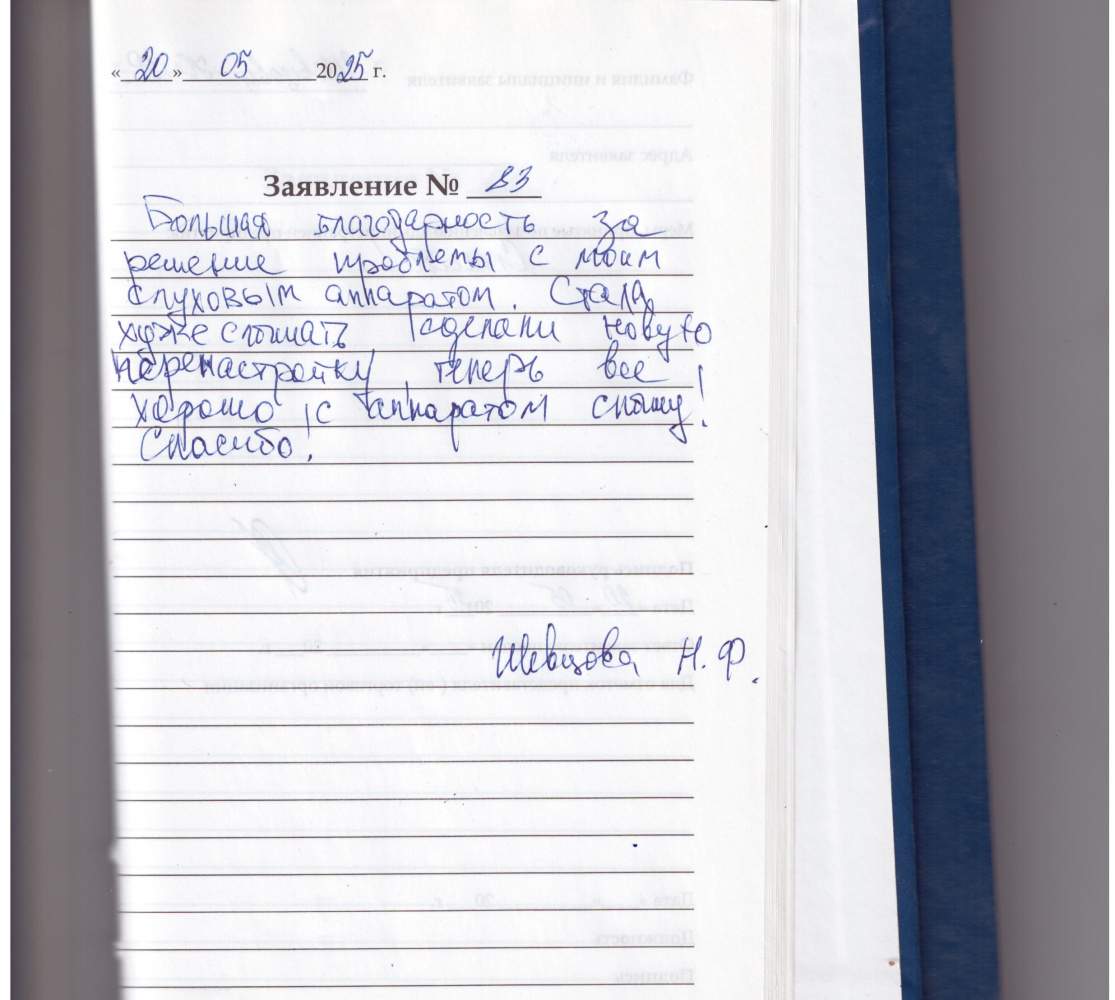 «20» 05 2025 г.
Заявление № 83
Большая благодарность за
решение проблемы с моим
слуховым аппаратом. Стала
хуже слышать, сделали новую
перенастройку, теперь все
хорошо, с аппаратом слышу!
Спасибо!
Шевцова Н. Ф.